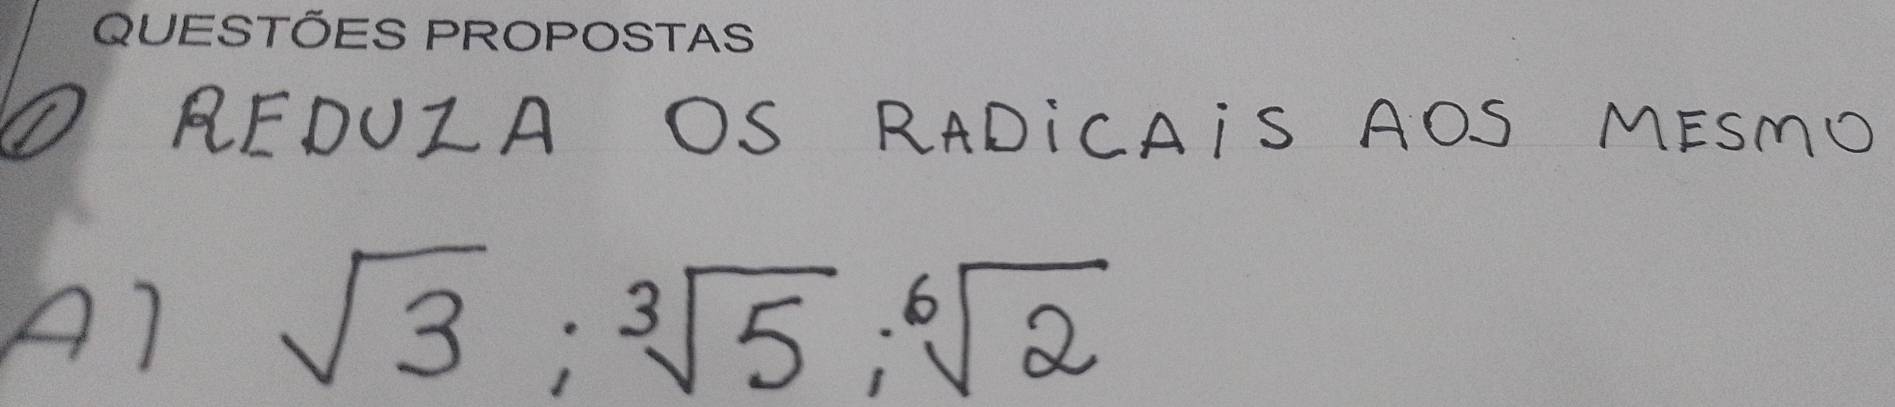 QUESTÕES PROPOSTAS
① REDUZA OS RADICAIS AOS MESMO
A) √3 ; ³√5 ; ⁶√2